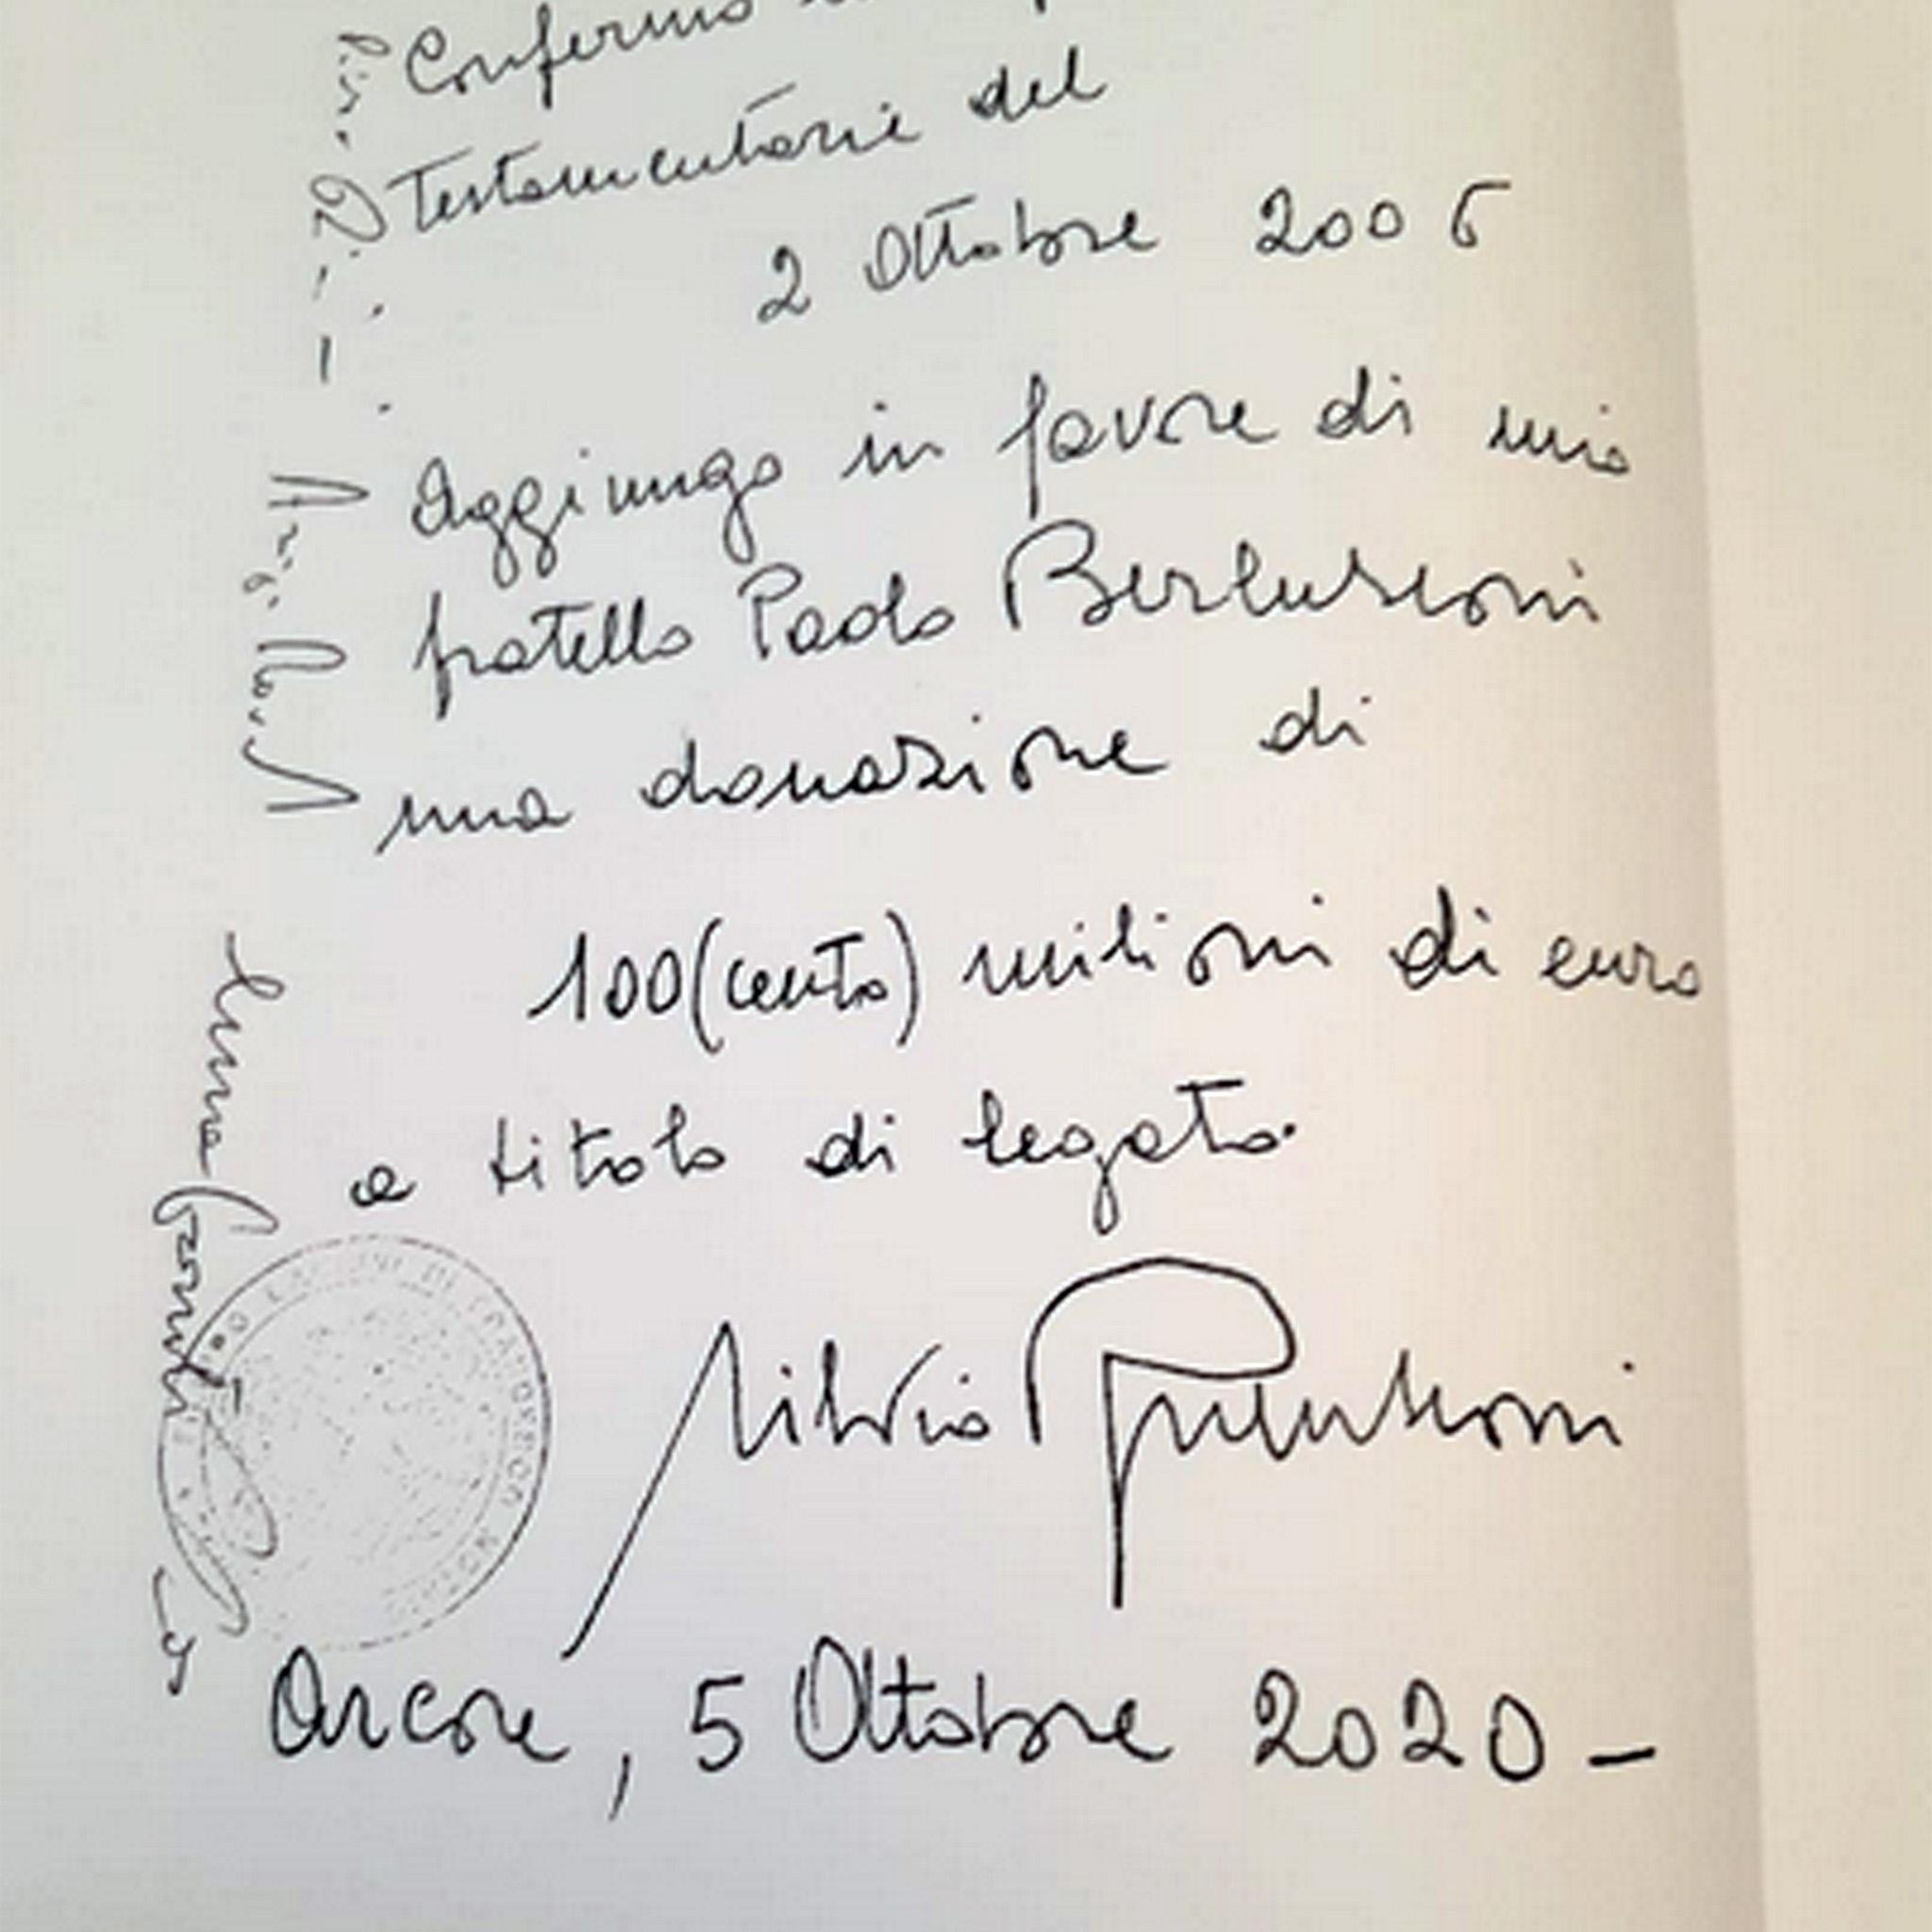 Confermo
Testamentarie del
2 Ottobre 2006
Aggiungo in favore di mio
fratello Paolo Berlusconi
una donazione di
100(cento) milioni di euro
a titolo di legato.
Silvio Berlusconi
Arcore, 5 Ottobre 2020 -